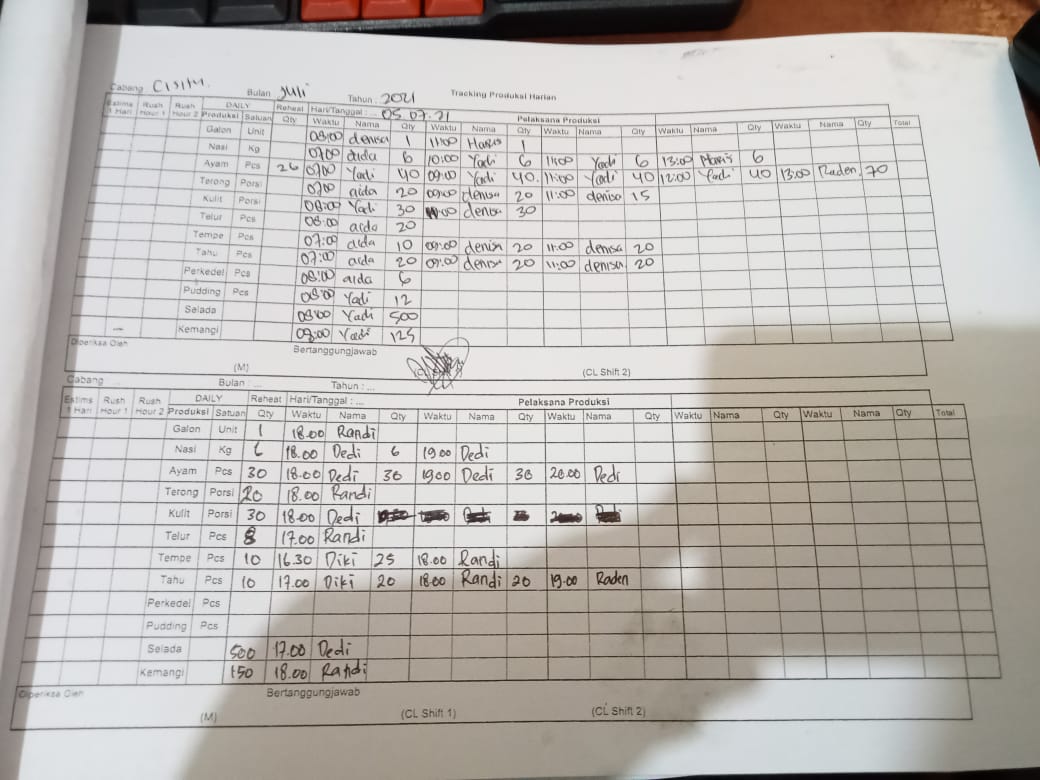 Cabang CISITU Bulan Juli Tahun : 2021 Tracking Produksi Harian
Estims 1 Hari Rush Hour 1 Rush Hour 2 DAILY Reheat Hari/Tanggal : ... 05.07.21 Pelaksana Produksi
Produksi Satuan Qty Waktu Nama Qty Waktu Nama Qty Waktu Nama Qty Waktu Nama Qty Waktu Nama Qty Total
Galon Unit 08:00 denisa 1 11:00 Haris 1
Nasi Kg 07:00 aida 6 10:00 Yadi 6 11:00 Yadi 6 13:00 Haris 6
Ayam Pcs 26 07:00 Yadi 40 09:00 Yadi 40 11:00 Yadi 40 12:00 Yadi 40 13:00 Raden 70
Terong Porsi 07:00 aida 20 09:00 denisa 20 11:00 denisa 15
Kulit Porsi 08:00 Yadi 30 denisa 30
Telur Pcs 08:00 aida 20
Tempe Pcs 07:00 aida 10 09:00 denisa 20 11:00 denisa 20
Tahu Pcs 07:00 aida 20 09:00 denisa 20 11:00 denisa 20
Perkedel Pcs 08:00 aida 6
Pudding Pcs 08:00 Yadi 12
Selada 08:00 Yadi 500
Kemangi 08:00 Yadi 125
Diperiksa Oleh Bertanggungjawab
(M) (CL Shift 2)
Cabang ... Bulan : ... Tahun : ...
Estims 1 Hari Rush Hour 1 Rush Hour 2 DAILY Reheat Hari/Tanggal : ... Pelaksana Produksi
Produksi Satuan Qty Waktu Nama Qty Waktu Nama Qty Waktu Nama Qty Waktu Nama Qty Waktu Nama Qty Total
Galon Unit 1 18.00 Randi
Nasi Kg 6 18.00 Dedi 6 19.00 Dedi
Ayam Pcs 30 18.00 Dedi 30 19.00 Dedi 30 20.00 Dedi
Terong Porsi 20 18.00 Randi
Kulit Porsi 30 18.00 Dedi
Telur Pcs 8 17.00 Randi
Tempe Pcs 10 16.30 Diki 25 18.00 Randi
Tahu Pcs 10 17.00 Diki 20 18.00 Randi 20 19.00 Raden
Perkedel Pcs
Pudding Pcs
Selada 500 17.00 Dedi
Kemangi 150 18.00 Randi
Diperiksa Oleh Bertanggungjawab
(M) (CL Shift 1) (CL Shift 2)